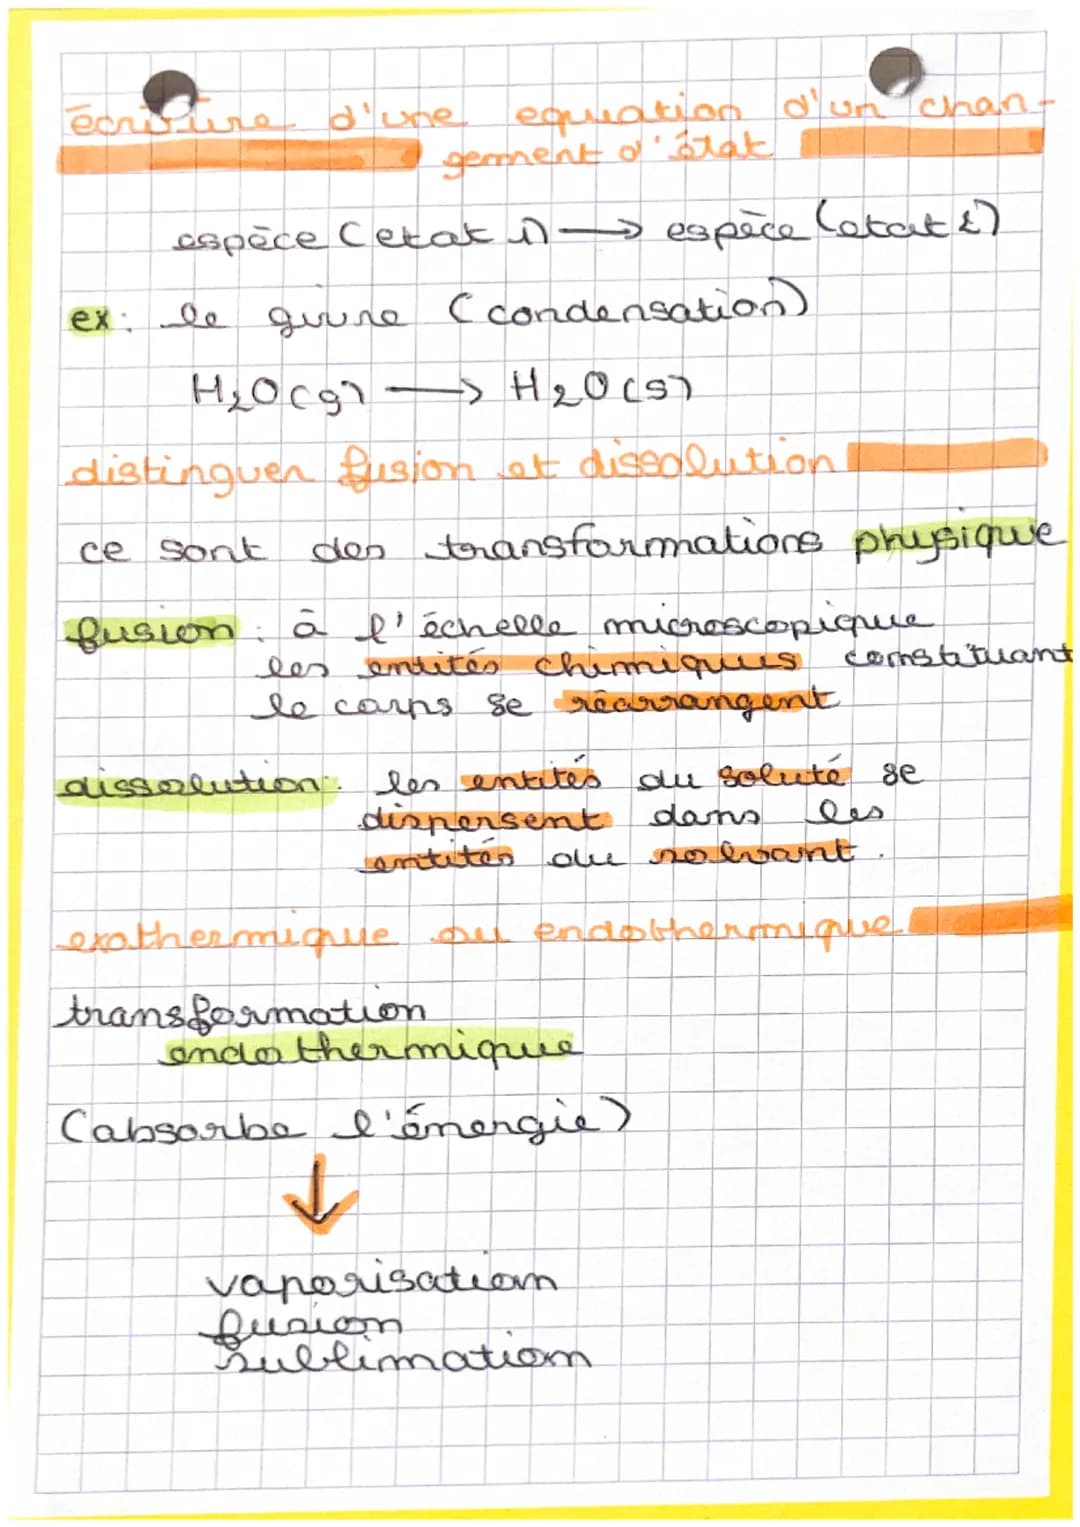 écriture d'une equation d'un chan-
gement d'état
espèce (etat 1) → espèce (etat 2)
ex: le givre (condensation)
H₂O(g) → H₂O(s)
distinguer fusion et dissolution
ce sont des transformations physique
fusion: à l'échelle microscopique
les entités chimiques constituant
le corps se réarrangent
dissolution: les entités du soluté se
dispersent dans les
entités du solvant.
exothermique ou endothermique
transformation
endothermique
(absorbe l'énergie)
↓
vaporisation
fusion
sublimation